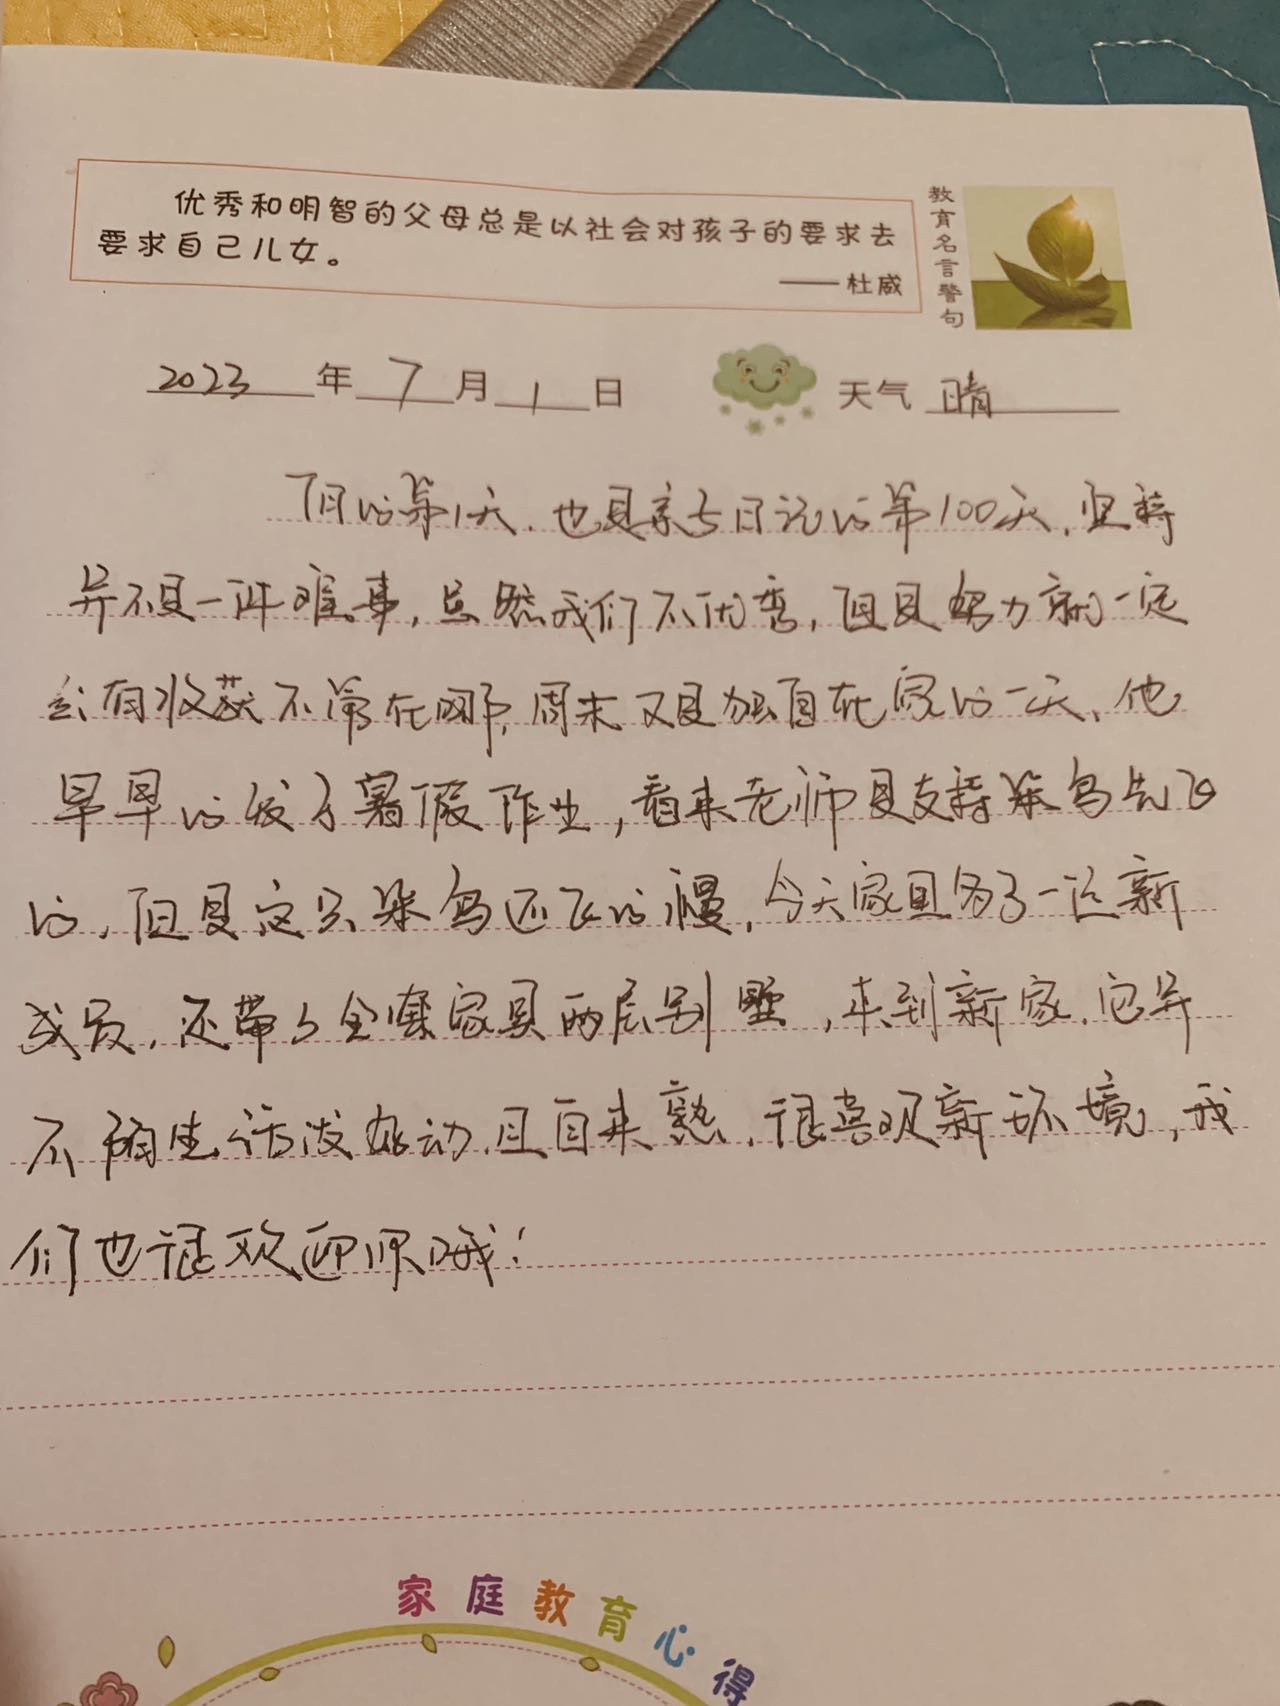 优秀和明智的父母总是以社会对孩子的要求去
要求自己儿女。
——杜威
教育名言警句
2023年7月1日 天气 晴
7月的第1天,也是亲子日记的第100天,坚持
并不是一件难事,虽然我们不优秀,但是努力就一定
会有收获不管在哪,周末又是独自在家的一天、他
早早的发了暑假作业,看来老师是支持笨鸟先飞
的,但是这只笨鸟还飞的慢,今天家里多了一位新
成员,还带了全套家具两层别墅,来到新家,它并
不陌生活泼好动且自来熟,很喜欢新环境,我
们也很欢迎你哦!
家庭教育心得